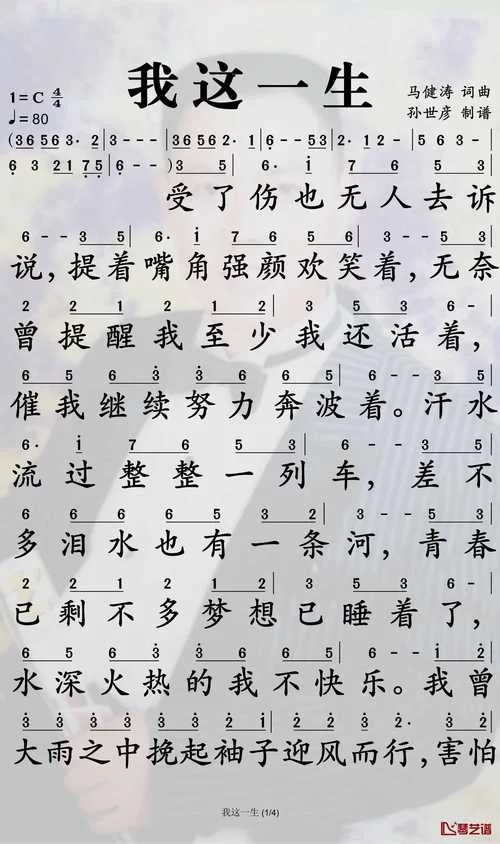 我这一生
1=C 4/4
马健涛 词曲
♩=80
孙世彦 制谱
(36563·2|3---|36562·|6--53|2·121|6---|
6 32175|6·--)35|6·i765|5653|
受了伤也无人去诉
6--35|6·i7656|6--35|
说,提着嘴角强颜欢笑着,无奈
221212|3536--|
曾提醒我至少我还活着,
65633665|6--35|
催我继续努力奔波着。汗水
6·i7653|6--35|
流过整整一列车,差不
66665332|3--53|
多泪水也有一条河,青春
22121235536--|
已剩不多梦想已睡着了,
65633665|6--33|
水深火热的我不快乐。我曾
3333332i|2i233·23|
大雨之中挽起袖子迎风而行,害怕
我这一生 (1/4)
琴艺谱